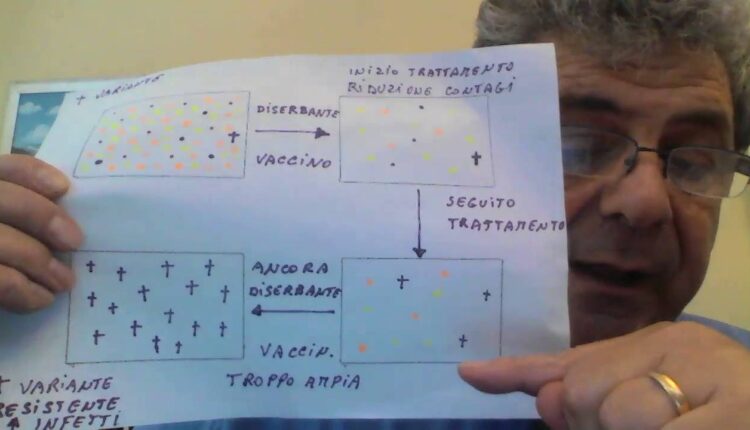 + VARIANTE
DISERBANTE
VACCINO
INIZIO TRATTAMENTO
RIDUZIONE CONTAGI
SEGUITO
TRATTAMENTO
ANCORA
DISERBANTE
VACCIN.
TROPPO AMPIA
+ VARIANTE
RESISTENTE
↑ INFETTI